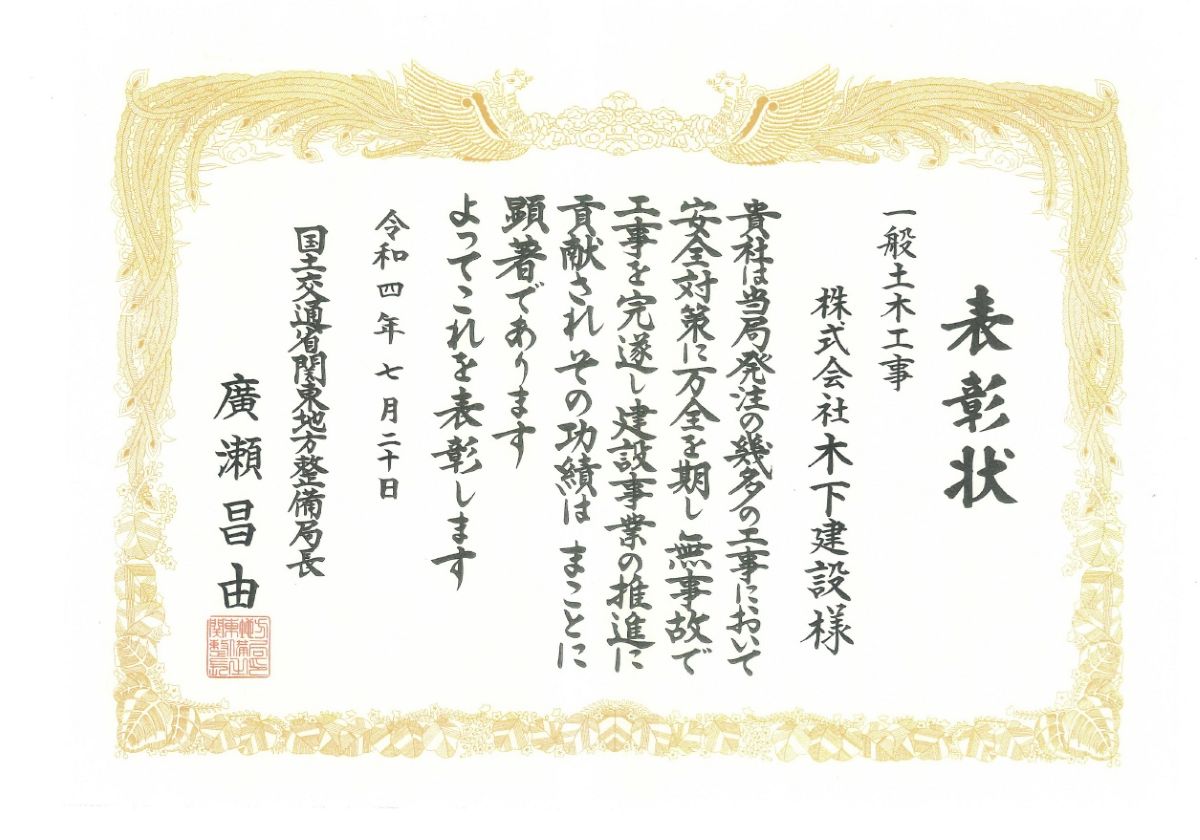 表彰状
一般土木工事
株式会社木下建設様
貴社は当局発注の幾多の工事において
安全対策に万全を期し無事故で
工事を完遂し建設事業の推進に
貢献されその功績はまことに
顕著であります
よってこれを表彰します
令和四年七月二十日
国土交通省関東地方整備局長
廣瀬昌由